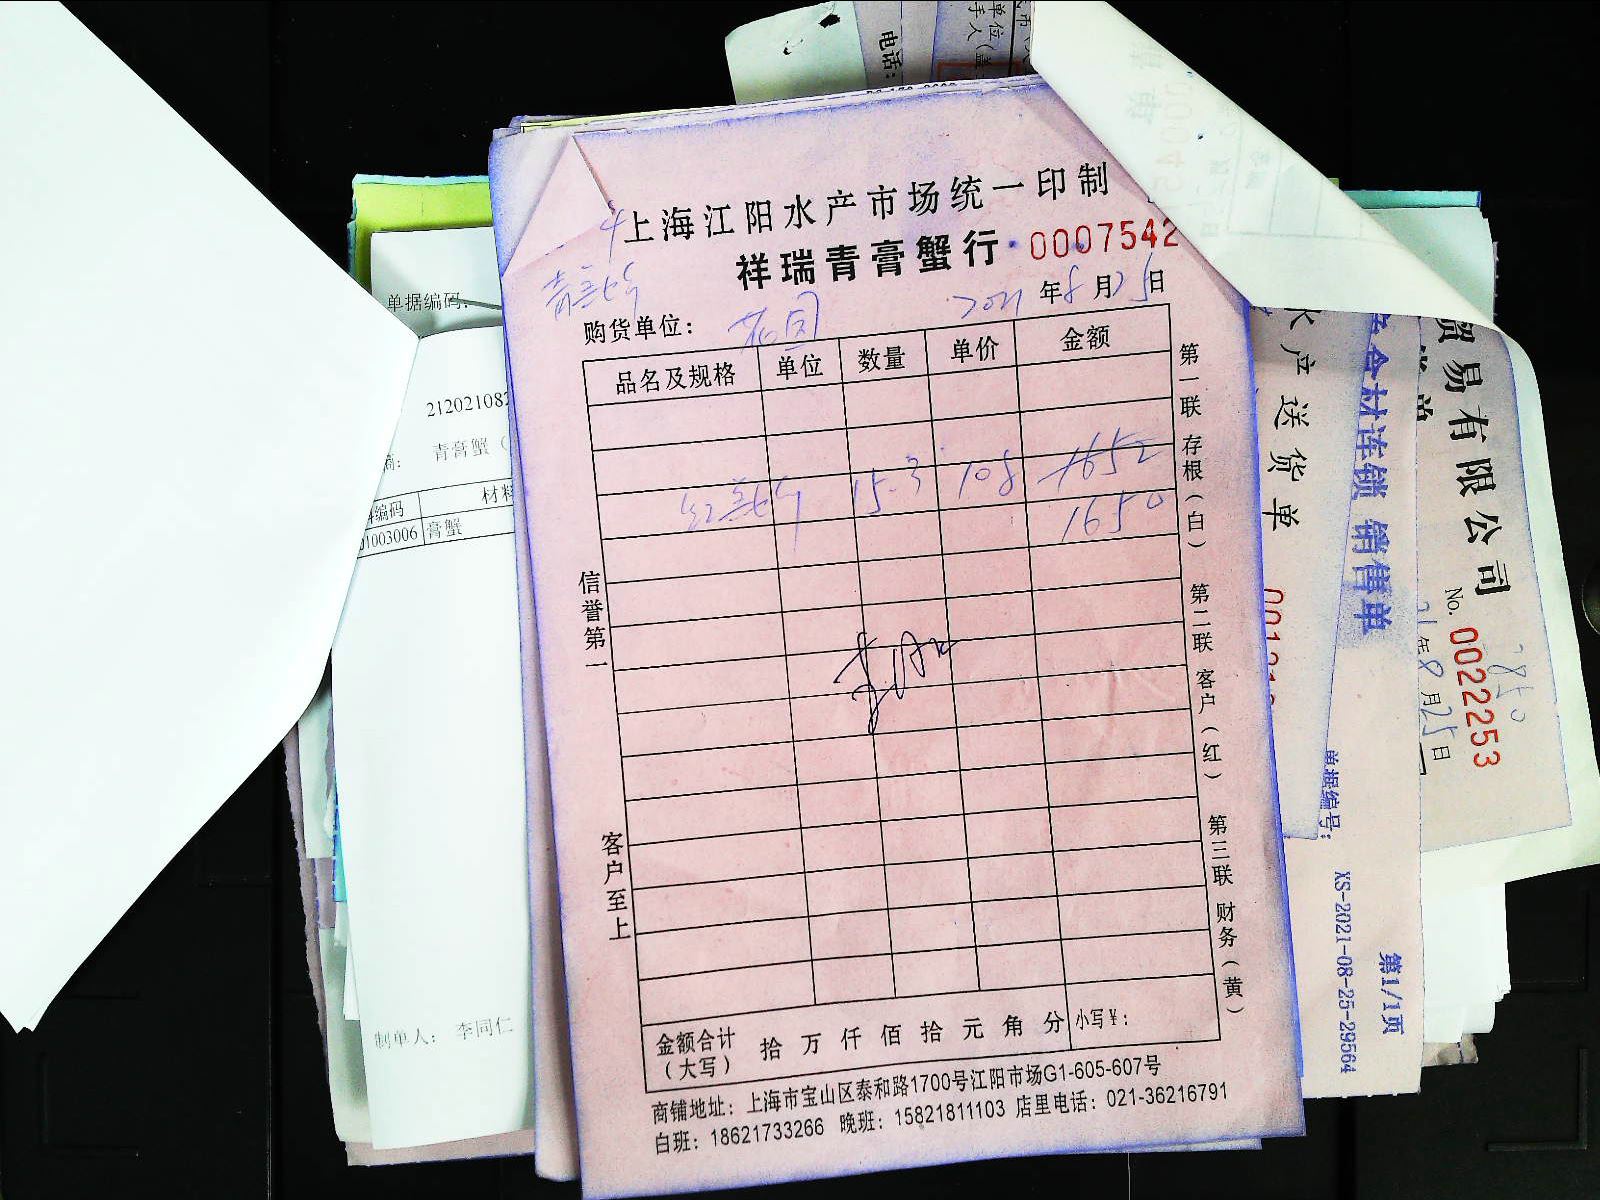 上海江阳水产市场统一印制
祥瑞青膏蟹行 0007542
2021年8月25日
购货单位: 花园
品名及规格 单位 数量 单价 金额
15.3 108 1652
1650
信誉第一
客户至上
第一联 存根(白) 第二联 客户(红) 第三联 财务(黄)
金额合计(大写) 拾 万 仟 佰 拾 元 角 分 小写¥:
商铺地址: 上海市宝山区泰和路1700号江阳市场G1-605-607号
白班: 18621733266 晚班: 15821811103 店里电话: 021-36216791
单据编码:
21202108
青膏蟹(
编码 材料
01003006 膏蟹
制单人: 李同仁
电话:
水产送货单
合材连锁 销售单
单据编号: XS-2021-08-25-29564
第1/1页
贸易有限公司
No. 0022253
21年8月25日